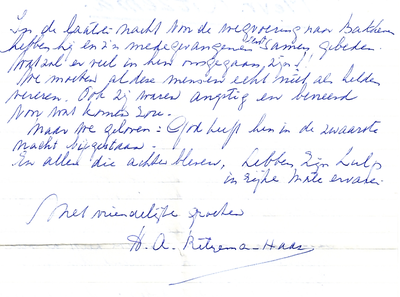 In de laatste nacht voor de wegvoering naar Bakkeveen
hebben hij en z'n medegevangenen samen gebeden.
Wat zal er veel in hen omgegaan zijn!!
We moeten al deze mensen echt niet als helden
vereren. Ook zij waren angstig en benauwd
voor wat komen zou.
Maar we geloven: God heeft hen in de zwaarste
nacht bijgestaan.
En allen die achterbleven, hebben Zijn hulp
in rijke mate ervaren.
Met vriendelijke groeten
H. A. Ritzema-Haas